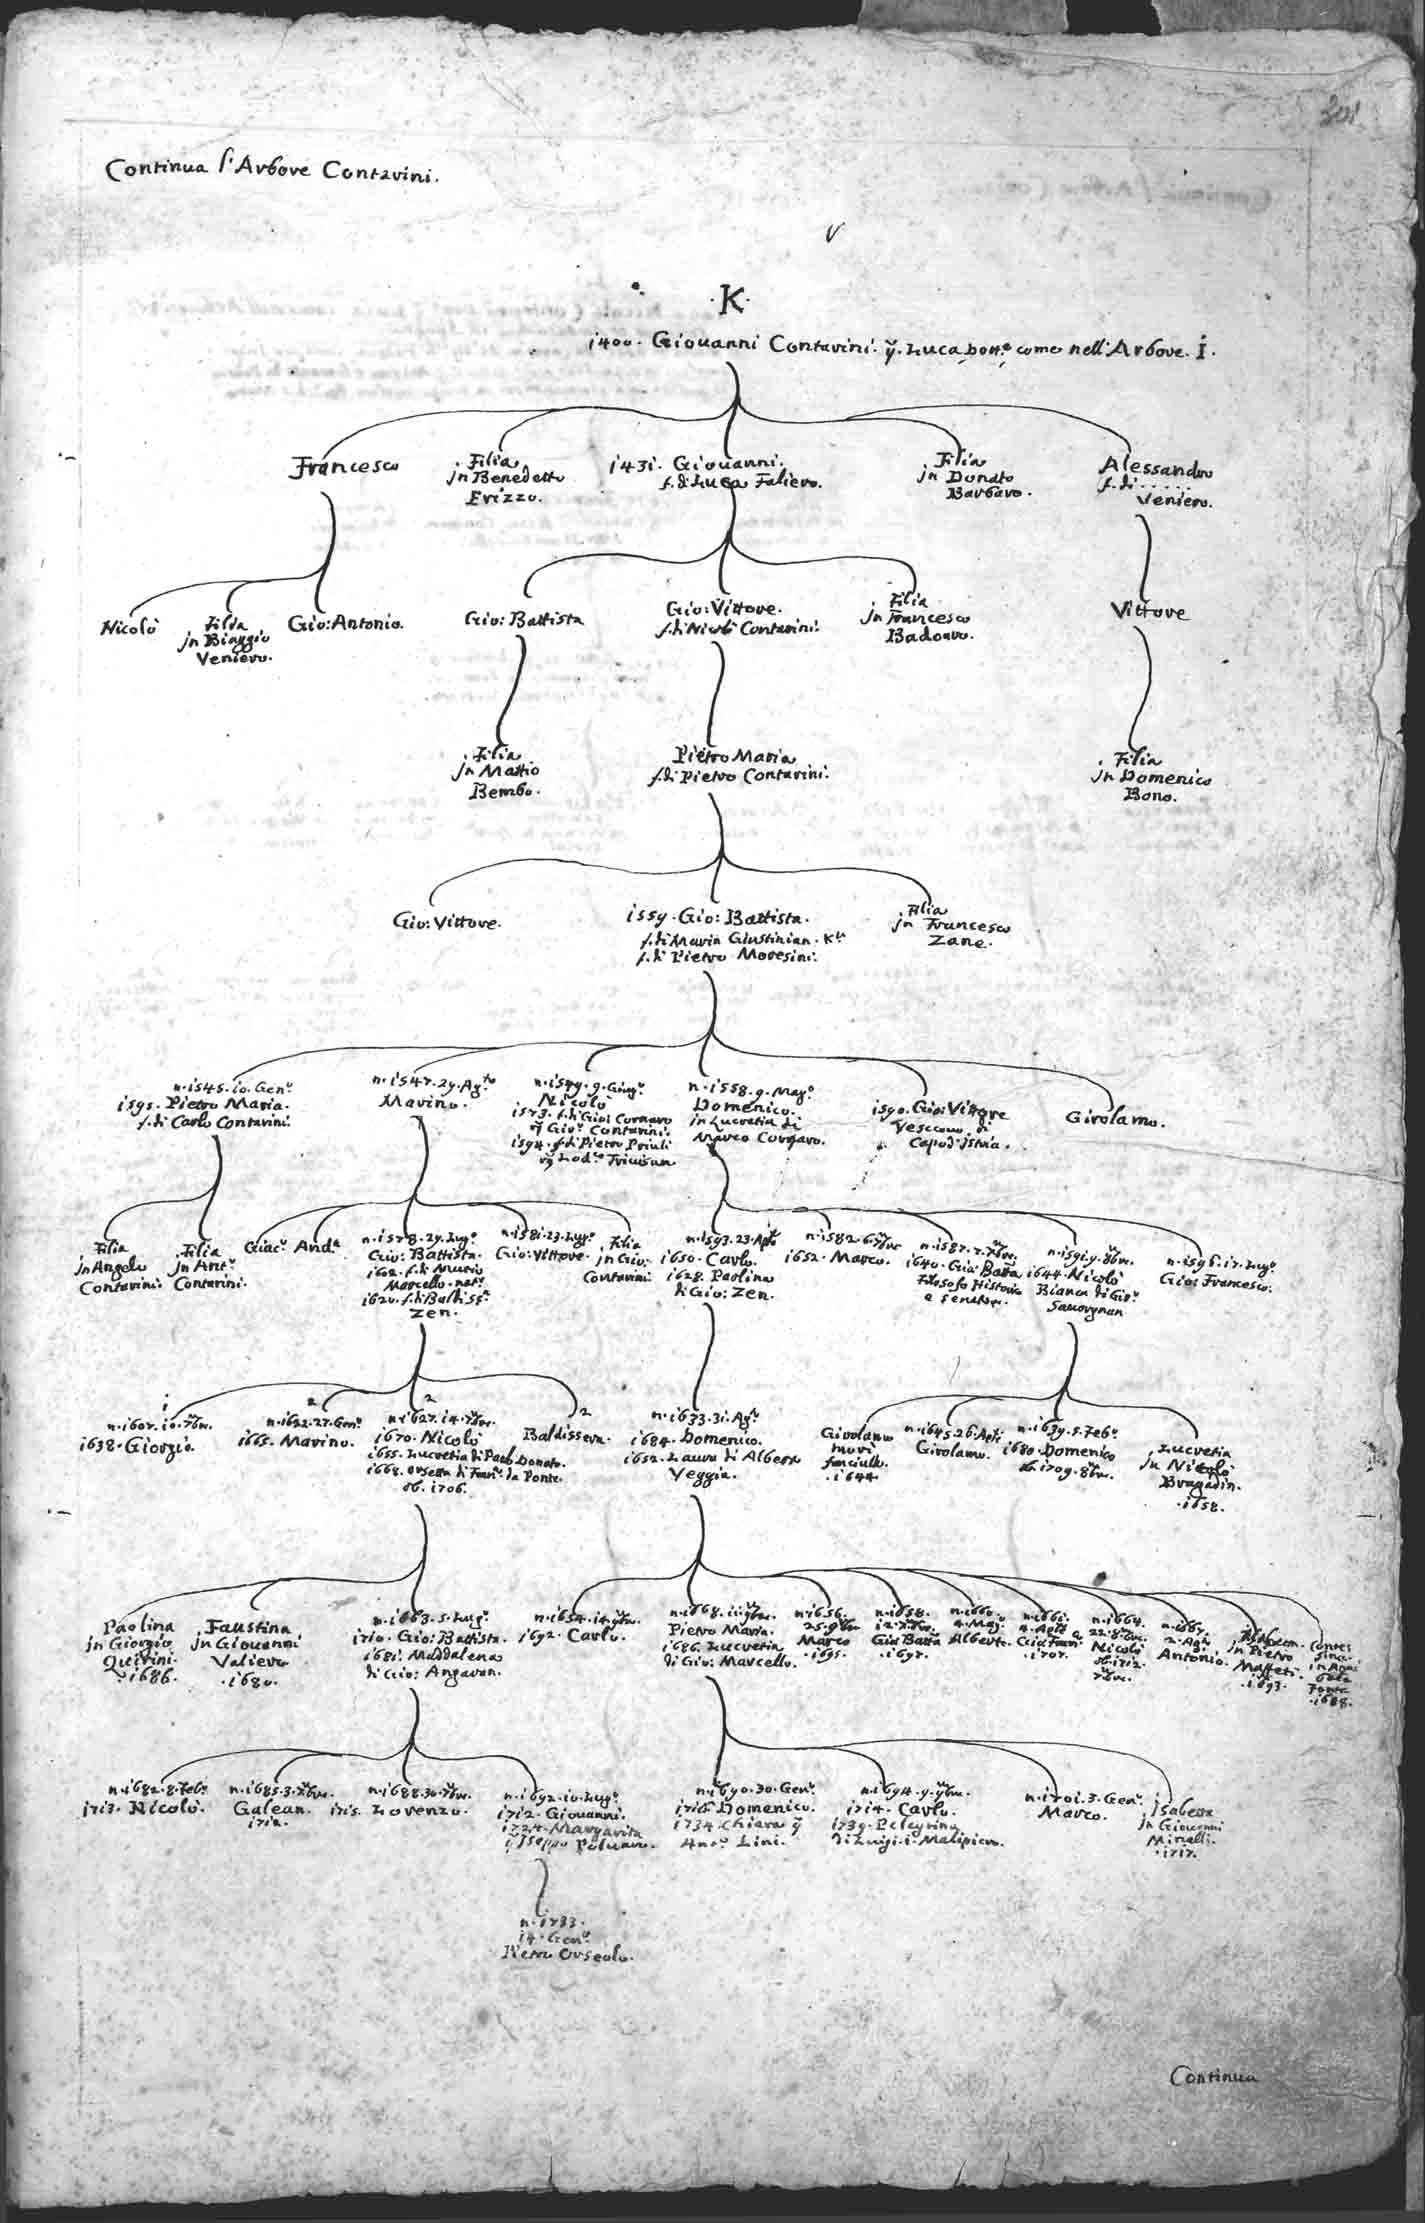 301
Continua l'Arbore Contarini.
K
1400. Giouanni Contarini. Luca come nell'Arbore. I.
Francesco
Filia
jn Benedetto
Erizzo.
1431. Giouanni.
f. di Luca Faliero.
Filia
jn Donato
Barbaro.
Alessandro
f. di . . . . .
Veniero.
Nicolò
Filia
jn Biaggio
Veniero.
Gio: Antonio.
Gio: Battista
Gio: Vittore.
f. di Nicolò Contarini.
Filia
jn Francesco
Badoaro.
Vittore
Filia
jn Mattio
Bembo.
Pietro Maria
f. di Pietro Contarini.
Filia
jn Domenico
Bono.
Gio: Vittore.
1559. Gio: Battista.
f. di Marin Giustinian. Kr
f. di Pietro Moresini.
Filia
jn Francesco
Zane.
n. 1545. 10. Genº
1595. Pietro Maria.
f. di Carlo Contarini.
n. 1547. 29. Agto
Marino.
n. 1549. 9. Giugº
Nicolò
1573. f. di Gio: Cornaro
Gioº Contarini.
1594. f. di Pietro Priuli
Lodco Triuisan
n. 1558. 9. Magº
Domenico.
in Lucretia di
Marco Cornaro.
1590. Gio: Vittore
Vescouo di
Capod'Istria.
Girolamo.
Filia
jn Angelo
Contarini.
Filia
jn Antº
Contarini.
Giacº
Anda
n. 1578. 29. Lugº
Gio: Battista.
1602. f. di Mutio
Marcello natº
1620. f. di Baldissa
Zen.
n. 1581. 23. Lugº
Gio: Vittore.
Filia
jn Gio:
Contarini
n. 1593. 23. Aple
1650. Carlo.
1628. Paolina
di Gio: Zen.
n. 1582. 6. 7bre
1652. Marco.
n. 1587. 7. 7bre.
1640. Gio: Batta
Filosofo Historico
e Senator.
n. 1591. 9. 8bre.
1644. Nicolò
Bianca di Gioº
Sauorgnan
n. 1596. 17. Lugº
Gio: Francesco.
1
n. 1607. 10. 7bre.
1638. Giorgio.
2
n. 1622. 27. Genº
1665. Marino.
2
n. 1627. 14. 7bre.
1670. Nicolò
1655. Lucretia di Paolo Donato.
1668. Orsetta di Franº da Ponte.
ob. 1706.
2
Baldissera.
n. 1633. 31. Agº
1684. Domenico.
1652. Laura di Alberto
Veggia.
Girolamo
morì
fanciullo.
. 1644.
n. 1645. 26. Aple
Girolamo.
n. 1639. 5. Febº
1680. Domenico
ob. 1709. 8bre.
Lucretia
jn Nicolò
Bragadin.
. 1658.
Paolina
jn Giorgio
Querini.
. 1686.
Faustina
jn Giouanni
Valiero
. 1680.
n. 1663. 5. Lugº
1710. Gio: Battista.
1681. Maddalena
di Gio: Angaran.
n. 1654. 14. 9bre.
1692. Carlo.
n. 1668. 11. 9bre.
Pietro Maria.
1686. Lucretia
di Gio: Marcello.
n. 1656.
25. 9bre
Marco
. 1695.
n. 1658.
12. 7bre.
Gio Batta
. 1697.
n. 1660.
4. Mag.
Alberto.
n. 1661.
4. Aple
Gio: Fran.
. 1707.
n. 1664.
22. 8bre.
Nicolò
ob. 1712.
7bre.
n. 1667.
2. Agº
Antonio.
jn Pietro
Maffetti.
. 1693.
Contes
sina.
Ponte
. 1688.
n. 1682. 8. Febº
1713. Nicolò.
n. 1685. 3. 7bre.
Galean.
1712.
n. 1688. 30. 7bre.
1715. Lorenzo.
n. 1692. 10. Lugº
1712. Giouanni.
1724. Margarita
Iseppo Peluaro.
n. 1690. 30. Genº
1716. Domenico.
1734 Chiara
Antº Lini.
n. 1694. 9. 9bre.
1714. Carlo.
1739. Pelegrina
di Luigi. 1. Malipiero.
n. 1701. 3. Genº
Marco.
Isabetta
jn Giouanni
Minelli.
. 1717.
n. 1733.
14. Genº
Pietro Orseolo.
Continua